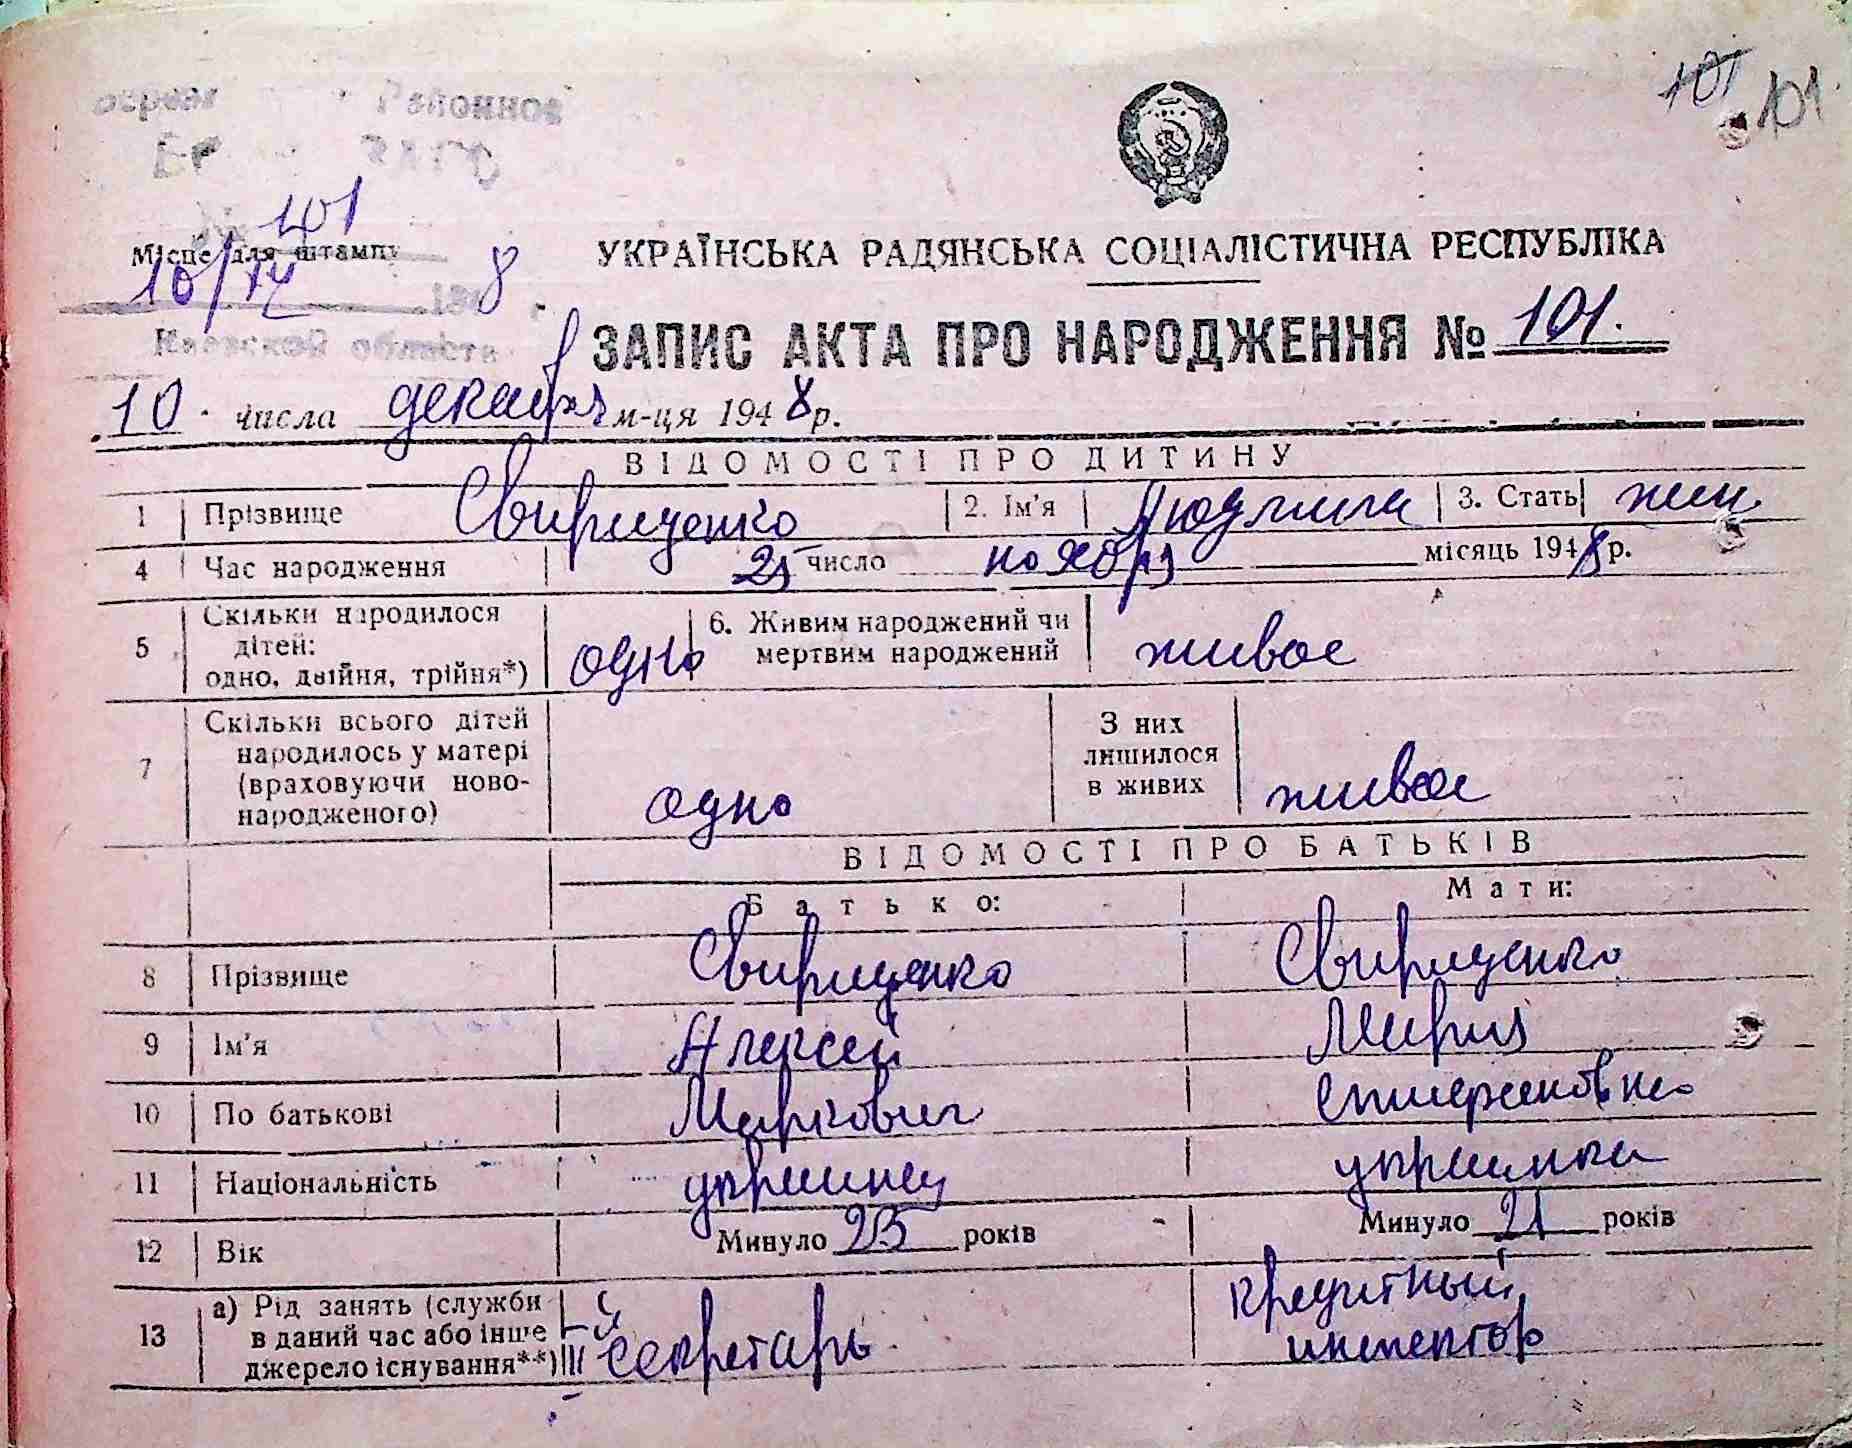 101 101
Районное
ЗАГС
101
Місце для штампу
10/12 8
Киевской области
УКРАЇНСЬКА РАДЯНСЬКА СОЦІАЛІСТИЧНА РЕСПУБЛІКА
ЗАПИС АКТА ПРО НАРОДЖЕННЯ № 101.
10. числа декабря м-ця 1948 р.
ВІДОМОСТІ ПРО ДИТИНУ
1 Прізвище Свириденко 2. Ім'я Людмила 3. Стать жен.
4 Час народження 25 число ноября місяць 1948 р.
5 Скільки народилося дітей: одно, двійня, трійня*) одно 6. Живим народжений чи мертвим народжений живое
7 Скільки всього дітей народилось у матері (враховуючи новонародженого) одно З них лишилося в живих живое
ВІДОМОСТІ ПРО БАТЬКІВ
Батько: Мати:
8 Прізвище Свириденко Свириденко
9 Ім'я Алексей Мария
10 По батькові Маркович
11 Національність украинец украинка
12 Вік Минуло 23 років Минуло 21 років
13 а) Рід занять (служби в даний час або інше джерело існування**) секретарь кредитный инспектор